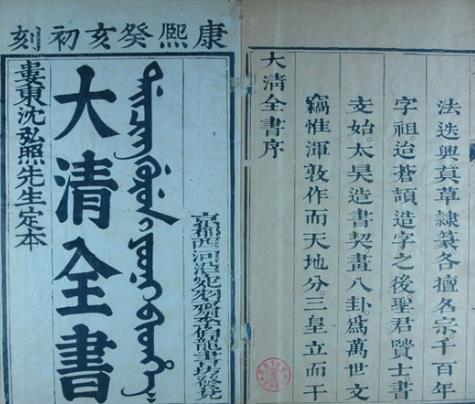 康熙癸亥初刻
婁東沈弘照先生定本
大清全書
ᡩᠠᡳᠴᡳᠩ ᡤᡠᡵᡠᠨ ᡳ ᠶᠣᠣᠨᡳ ᠪᡳᡨᡥᡝ
京都西河沿宛羽齋李伯龍書房發兌
大清全書序
竊惟渾敦作而天地分。三皇立而干
支始。太昊造書契畫八卦。爲萬世文
字祖。迨蒼頡造字之後。聖君賢士書
法迭興。眞草隸篆各擅名宗。千百年